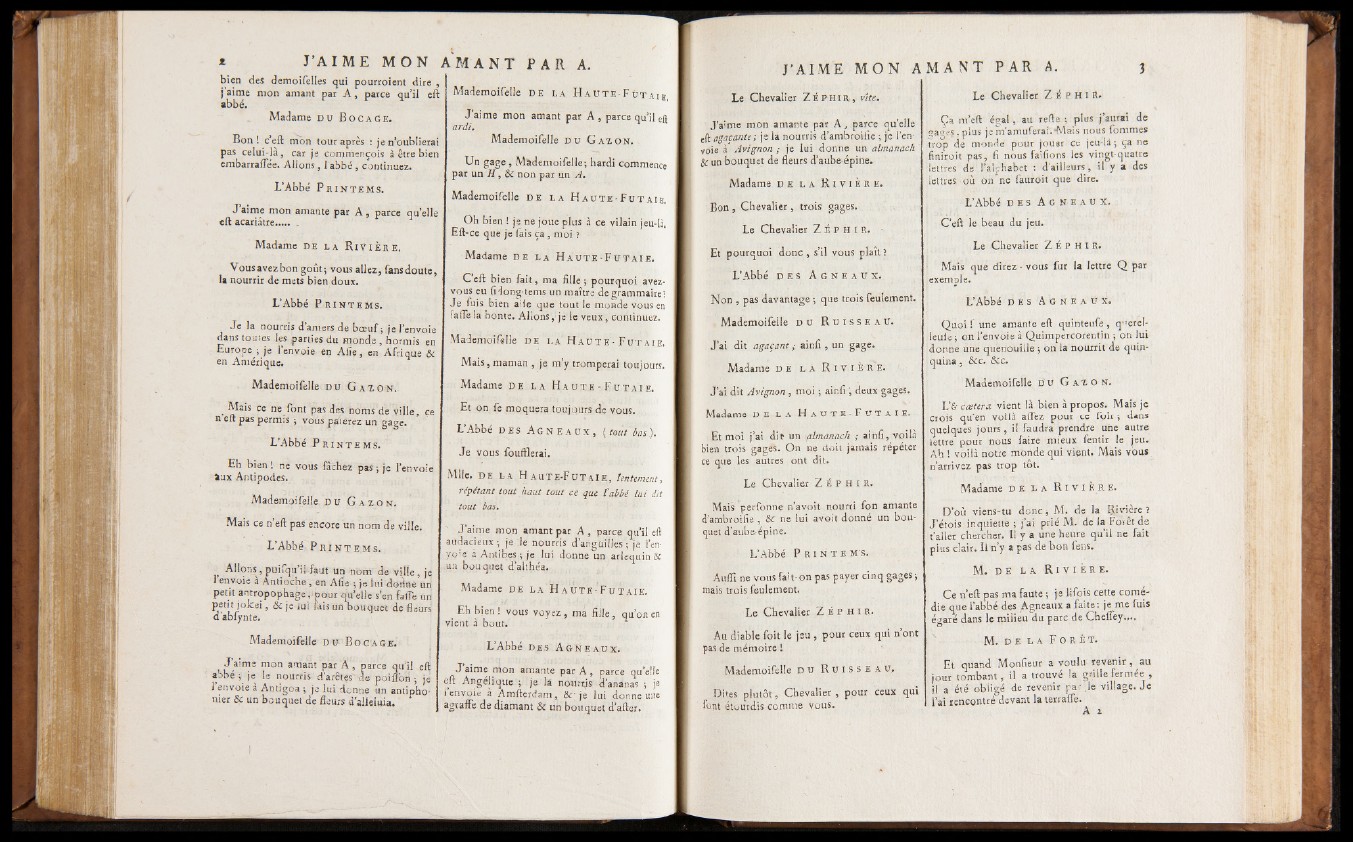 2 J'AIME MON AMANT PAR A.
bien des demoiſelles qui pourroient dire ,
j'aime mon amant par A , parce qu'il eſt
abbé.
Madame DU BOCAGE.
Bon ! c'eſt mon tour après : je n'oublierai
pas celui-là, car je commençois à être bien
embarraſſée. Allons, l'abbé, continuez.
L'Abbé PRINTEMS.
J'aime mon amante par A, parce qu'elle
eſt acariâtre.....
Madame DE LA RIVIÈRE.
Vous avez bon goût; vous allez, ſans doute,
la nourrir de mets bien doux.
L'Abbé PRINTEMS.
Je la nourris d'amers de bœuf; je l'envoie
dans toutes les parties du monde, hormis en
Europe ; je l'envoie en Aſie, en Afrique &
en Amérique.
Mademoiſelle DU GAZON.
Mais ce ne ſont pas des noms de ville, ce
n'eſt pas permis ; vous paierez un gage.
L'Abbé PRINTEMS.
Eh bien ! ne vous fâchez pas ; je l'envoie
aux Antipodes.
Mademoiſelle DU GAZON.
Mais ce n'eſt pas encore un nom de ville.
L'Abbé PRINTEMS.
Allons, puiſqu'il faut un nom de ville, je
l'envoie à Antioche, en Aſie ; je lui donne un
petit antropophage, pour qu'elle s'en faſſe un
petit jokei, & je lui fais un bouquet de fleurs
d'abſynte.
Mademoiſelle DU BOCAGE.
J'aime mon amant par A, parce qu'il eſt
abbé ; je le nourris d'arêtes de poiſſon ; je
l'envoie à Antigoa ; je lui donne un antipho-
nier & un bouquet de fleurs d'alleluia.
Mademoiſelle DE LA HAUTE-FUTAIE.
J'aime mon amant par A, parce qu'il eſt
ardi.
Mademoiſelle DU GAZON.
Un gage, Mademoiſelle; hardi commence
par un H, & non par un A.
Mademoiſelle DE LA HAUTE-FUTAIE.
Oh bien ! je ne joue plus à ce vilain jeu-là.
Eſt-ce que je ſais ça, moi ?
Madame DE LA HAUTE-FUTAIE.
C'eſt bien fait, ma fille ; pourquoi avez-
vous eu ſi long-tems un maître de grammaire ?
Je ſuis bien aiſe que tout le monde vous en
faſſe la honte. Allons, je le veux, continuez.
Mademoiſelle DE LA HAUTE-FUTAIE.
Mais, maman, je m'y tromperai toujours.
Madame DE LA HAUTE-FUTAIE.
Et on ſe moquera toujours de vous.
L'Abbé DES AGNEAUX, (tout bas).
Je vous ſoufflerai.
Mlle. DE LA HAUTE-FUTAIE, lentement,
répétant tout haut tout ce que l'abbé lui dit
tout bas.
J'aime mon amant par A, parce qu'il eſt
audacieux ; je le nourris d'anguilles ; je l'en-
voie à Antibes ; je lui donne un arlequin &
un bouquet d'althéa.
Madame DE LA HAUTE-FUTAIE.
Eh bien ! vous voyez, ma fille, qu'on en
vient à bout.
L'Abbé DES AGNEAUX.
J'aime mon amante par A, parce qu'elle
eſt Angélique ; je la nourris d'ananas ; je
l'envoie à Amſterdam, & je lui donne une
agraffe de diamant & un bouquet d'aſter.
J'AIME MON AMANT PAR A. 3
Le Chevalier ZÉPHIR, vîte.
J'aime mon amante par A, parce qu'elle
eſt agaçante ; je la nourris d'ambroiſie ; je l'en-
voie à Avignon ; je lui donne un almanach
& un bouquet de fleurs d'aube-épine.
Madame DE LA RIVIÈRE.
Bon, Chevalier, trois gages.
Le Chevalier ZÉPHIR.
Et pourquoi donc, s'il vous plaît ?
L'Abbé DES AGNEAUX.
Non, pas davantage ; que trois ſeulement.
Mademoiſelle DU RUISSEAU.
J'ai dit agaçant ; ainſi, un gage.
Madame DE LA RIVIÈRE.
J'ai dit Avignon, moi ; ainſi, deux gages.
Madame DE LA HAUTE-FUTAIE.
Et moi j'ai dit un almanach ; ainſi, voilà
bien trois gages. On ne doit jamais répéter
ce que les autres ont dit.
Le Chevalier ZÉPHIR.
Mais perſonne n'avoit nourri ſon amante
d'ambroiſie, & ne lui avoit donné un bou-
quet d'aube-épine.
L'Abbé PRINTEMS.
Auſſi ne vous fait-on pas payer cinq gages ;
mais trois ſeulement.
Le Chevalier ZÉPHIR.
Au diable ſoit le jeu, pour ceux qui n'ont
pas de mémoire !
Mademoiſelle DU RUISSEAU.
Dites plutôt, Chevalier, pour ceux qui
ſont étourdis comme vous.
Le Chevalier ZÉPHIR.
Ça m'eſt égal, au reſte ; plus j'aurai de
gages, plus je m'amuſerai. Mais nous ſommes
trop de monde pour jouer ce jeu-là ; ça ne
finiroit pas, ſi nous faiſions les vingt-quatre
lettres de l'alphabet : d'ailleurs, il y a des
lettres où on ne ſauroit que dire.
L'Abbé DES AGNEAUX.
C'eſt le beau du jeu.
Le Chevalier ZÉPHIR.
Mais que direz-vous ſur la lettre Q par
exemple.
L'Abbé DES AGNEAUX.
Quoi ! une amante eſt quinteuſe, querel-
leuſe ; on l'envoie à Quimpercorentin ; on lui
donne une quenouille ; on la nourrit de quin-
quina, &c. &c.
Mademoiſelle DU GAZON.
L'& cætera vient là bien à propos. Mais je
crois qu'en voilà aſſez pour ce ſoir ; dans
quelques jours, il faudra prendre une autre
lettre pour nous faire mieux ſentir le jeu.
Ah ! voilà notre monde qui vient. Mais vous
n'arrivez pas trop tôt.
Madame DE LA RIVIÈRE.
D'où viens-tu donc, M. de la Rivière ?
J'étois inquiette ; j'ai prié M. de la Forêt de
t'aller chercher. Il y a une heure qu'il ne fait
plus clair. Il n'y a pas de bon ſens.
M. DE LA RIVIÈRE.
Ce n'eſt pas ma faute ; je liſois cette comé-
die que l'abbé des Agneaux a faite : je me ſuis
égaré dans le milieu du parc de Cheſſey....
M. DE LA FORÊT.
Et quand Monſieur a voulu revenir, au
jour tombant, il a trouvé la grille fermée,
il a été obligé de revenir par le village. Je
l'ai rencontré devant la terraſſe.
A 2